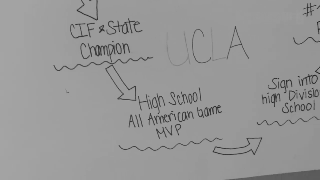 CIF & State
Champion
UCLA
#
High School
All American Game
MVP
Sign into
high Division
School